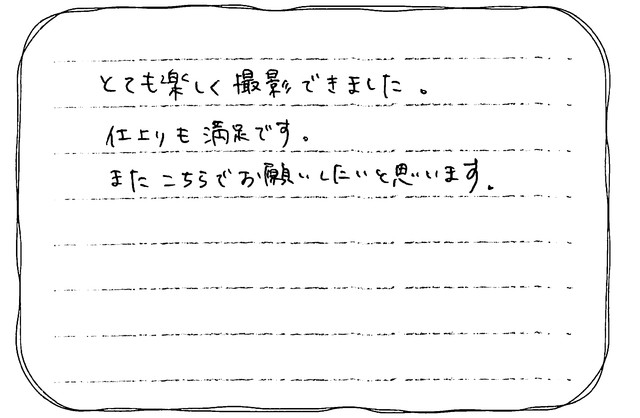 とても楽しく撮影できました。
仕上りも満足です。
またこちらでお願いしたいと思います。